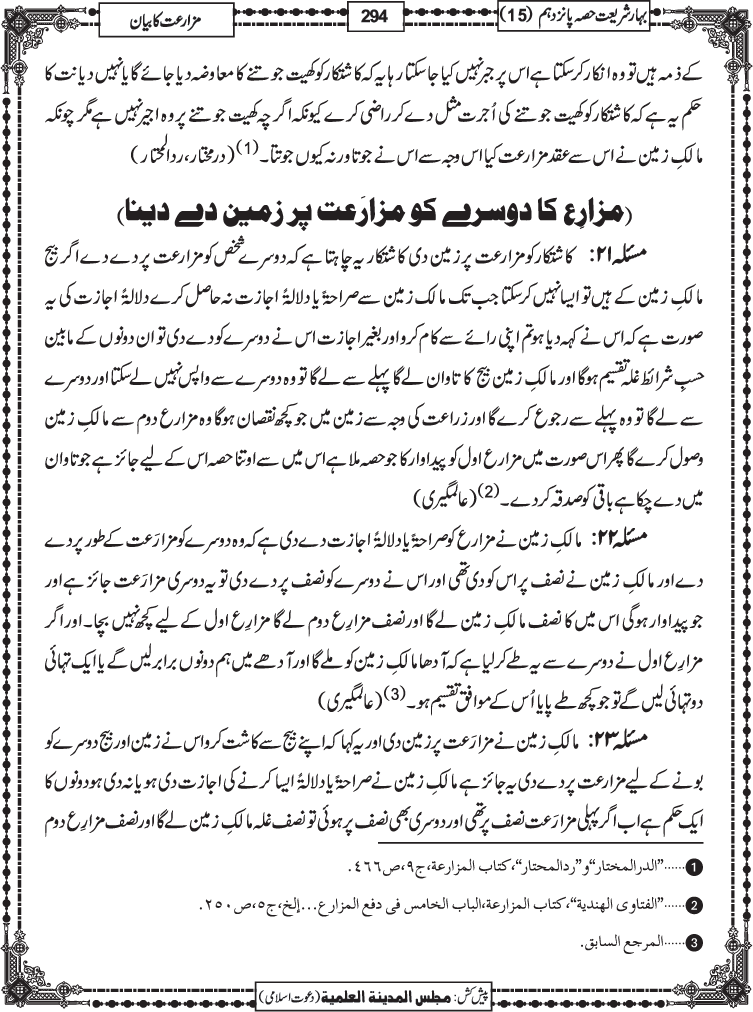 بہارِ شریعت حصہ پانزدہم (15)
294
مزارعت کا بیان
کے ذمہ ہیں تو وہ انکار کرسکتا ہے اس پر جبر نہیں کیا جاسکتا رہا یہ کہ کاشتکار کو کھیت جوتنے کا معاوضہ دیا جائے گا یا نہیں دیانت کا
حکم یہ ہے کہ کاشتکار کو کھیت جوتنے کی اُجرت مثل دے کر راضی کرے کیونکہ اگرچہ کھیت جوتنے پر وہ اجیر نہیں ہے مگر چونکہ
مالکِ زمین نے اس سے عقد مزارعت کیا اس وجہ سے اس نے جوتا ورنہ کیوں جوتتا۔(1) (درمختار، ردالمحتار)
(مزارِع کا دوسرے کو مزارَعت پر زمین دے دینا)
مسئلہ ۲۱: کاشتکار کو مزارعت پر زمین دی کاشتکار یہ چاہتا ہے کہ دوسرے شخص کو مزارعت پر دے دے اگر بیج
مالکِ زمین کے ہیں تو ایسا نہیں کرسکتا جب تک مالک زمین سے صراحۃً یا دلالۃً اجازت نہ حاصل کرے دلالۃً اجازت کی یہ
صورت ہے کہ اس نے کہہ دیا ہو تم اپنی رائے سے کام کرو اور بغیر اجازت اس نے دوسرے کو دے دی تو ان دونوں کے مابین
حسبِ شرائط غلہ تقسیم ہوگا اور مالکِ زمین بیج کا تاوان لے گا پہلے سے لے گا تو وہ دوسرے سے واپس نہیں لے سکتا اور دوسرے
سے لے گا تو وہ پہلے سے رجوع کرے گا اور زراعت کی وجہ سے زمین میں جو کچھ نقصان ہوگا وہ مزارع دوم سے مالکِ زمین
وصول کرے گا پھر اس صورت میں مزارع اول کو پیداوار کا جو حصہ ملا ہے اس میں سے اوتنا حصہ اس کے لیے جائز ہے جو تاوان
میں دے چکا ہے باقی کو صدقہ کردے۔(2) (عالمگیری)
مسئلہ ۲۲: مالکِ زمین نے مزارع کو صراحۃً یا دلالۃً اجازت دے دی ہے کہ وہ دوسرے کو مزارَعت کے طور پر دے
دے اور مالکِ زمین نے نصف پر اس کو دی تھی اور اس نے دوسرے کو نصف پر دے دی تو یہ دوسری مزارَعت جائز ہے اور
جو پیداوار ہوگی اس میں کا نصف مالکِ زمین لے گا اور نصف مزارِعِ دوم لے گا مزارِعِ اول کے لیے کچھ نہیں بچا۔ اور اگر
مزارِعِ اول نے دوسرے سے یہ طے کرلیا ہے کہ آدھا مالکِ زمین کو ملے گا اور آدھے میں ہم دونوں برابر لیں گے یا ایک تہائی
دو تہائی لیں گے تو جو کچھ طے پایا اُس کے موافق تقسیم ہو۔(3) (عالمگیری)
مسئلہ ۲۳: مالکِ زمین نے مزارَعت پر زمین دی اور یہ کہا کہ اپنے بیج سے کاشت کرو اس نے زمین اور بیج دوسرے کو
بونے کے لیے مزارعت پر دے دی یہ جائز ہے مالکِ زمین نے صراحۃً یا دلالۃً ایسا کرنے کی اجازت دی ہو یا نہ دی ہو دونوں کا
ایک حکم ہے اب اگر پہلی مزارَعت نصف پر تھی اور دوسری بھی نصف پر ہوئی تو نصف غلہ مالکِ زمین لے گا اور نصف مزارِعِ دوم
1......"الدرالمختار"و"ردالمحتار"،کتاب المزارعة،ج۹،ص٤٦٦.
2......"الفتاوی الهندیة"،کتاب المزارعة،الباب الخامس فی دفع المزارع...إلخ،ج۵،ص۲۵۰.
3......المرجع السابق.
پیش کش: مجلس المدینة العلمیة (دعوت اسلامی)